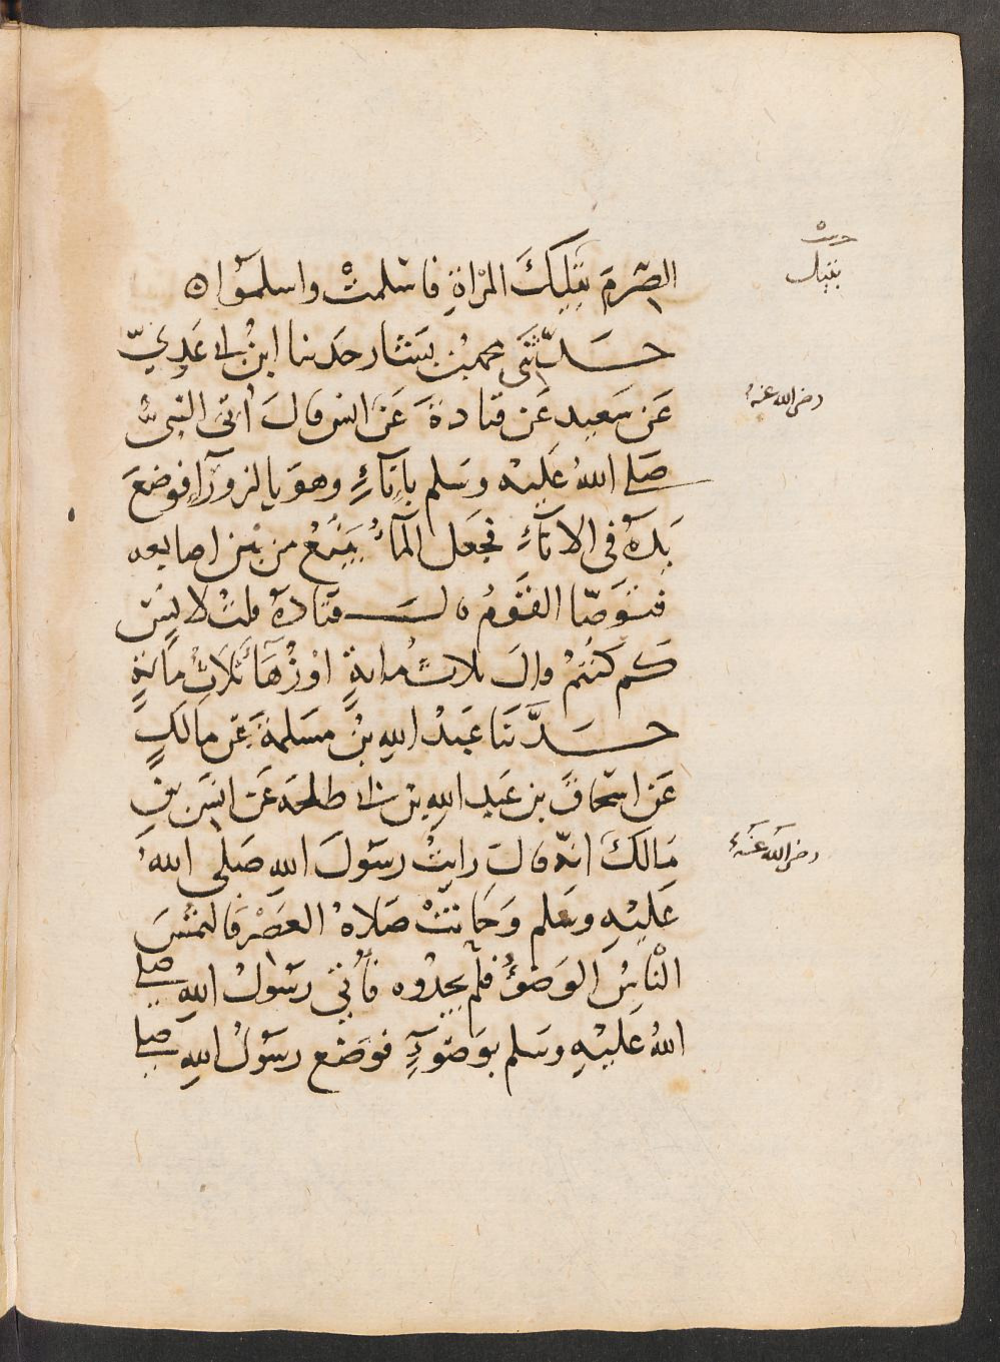 الصِّرمَ بتلكَ المرْاةِ فاسْلمتْ واسلمُوا ه
حــدّثنى محمد بن بَشار حدثنا ابنُ ابى عَدِىّ
عَن سَعيد عَن قتادةَ عَن انس قالَ اُتىَ النبىُّ
صَلى اللهُ عَليْه وسَلم بِانآءٍ وهوَ بالزورآءِ فوضعَ
يدَهُ فى الانآءِ فجعَل المآءُ يَنبُعُ من بَين اصابعه
فتوَضّا القَومُ قالـــ قتادةُ قلتُ لانسٍ
كم كنتُمْ قالَ ثلاثُ مايةٍ اوْ زُهَآءَ ثلاثِ مايةٍ
حــدَّثنَا عَبدُ اللهِ بْنُ مسَلمةَ عَن مالكٍ
عَن اسحاقَ بن عَبد اللهِ بن ابى طلحة عَن انسَ بنِ
مَالكَ انهّ قالَ رايتُ رسَولَ اللهِ صَلى اللهُ
عَليْهِ وسَلم وَحَانتْ صَلاةُ العَصْر فَالتمُسَ
النْاسُ الوَضوُءَ فلم يجدُوه فأُتىَ رسَولُ اللهِ صلى
اللهُ عَليْهِ وسَلم بوَضوءٍ فوضَع رسَولُ اللهِ صلى
بتيك
رضى الله عنهُ
رضى الله عنهُ